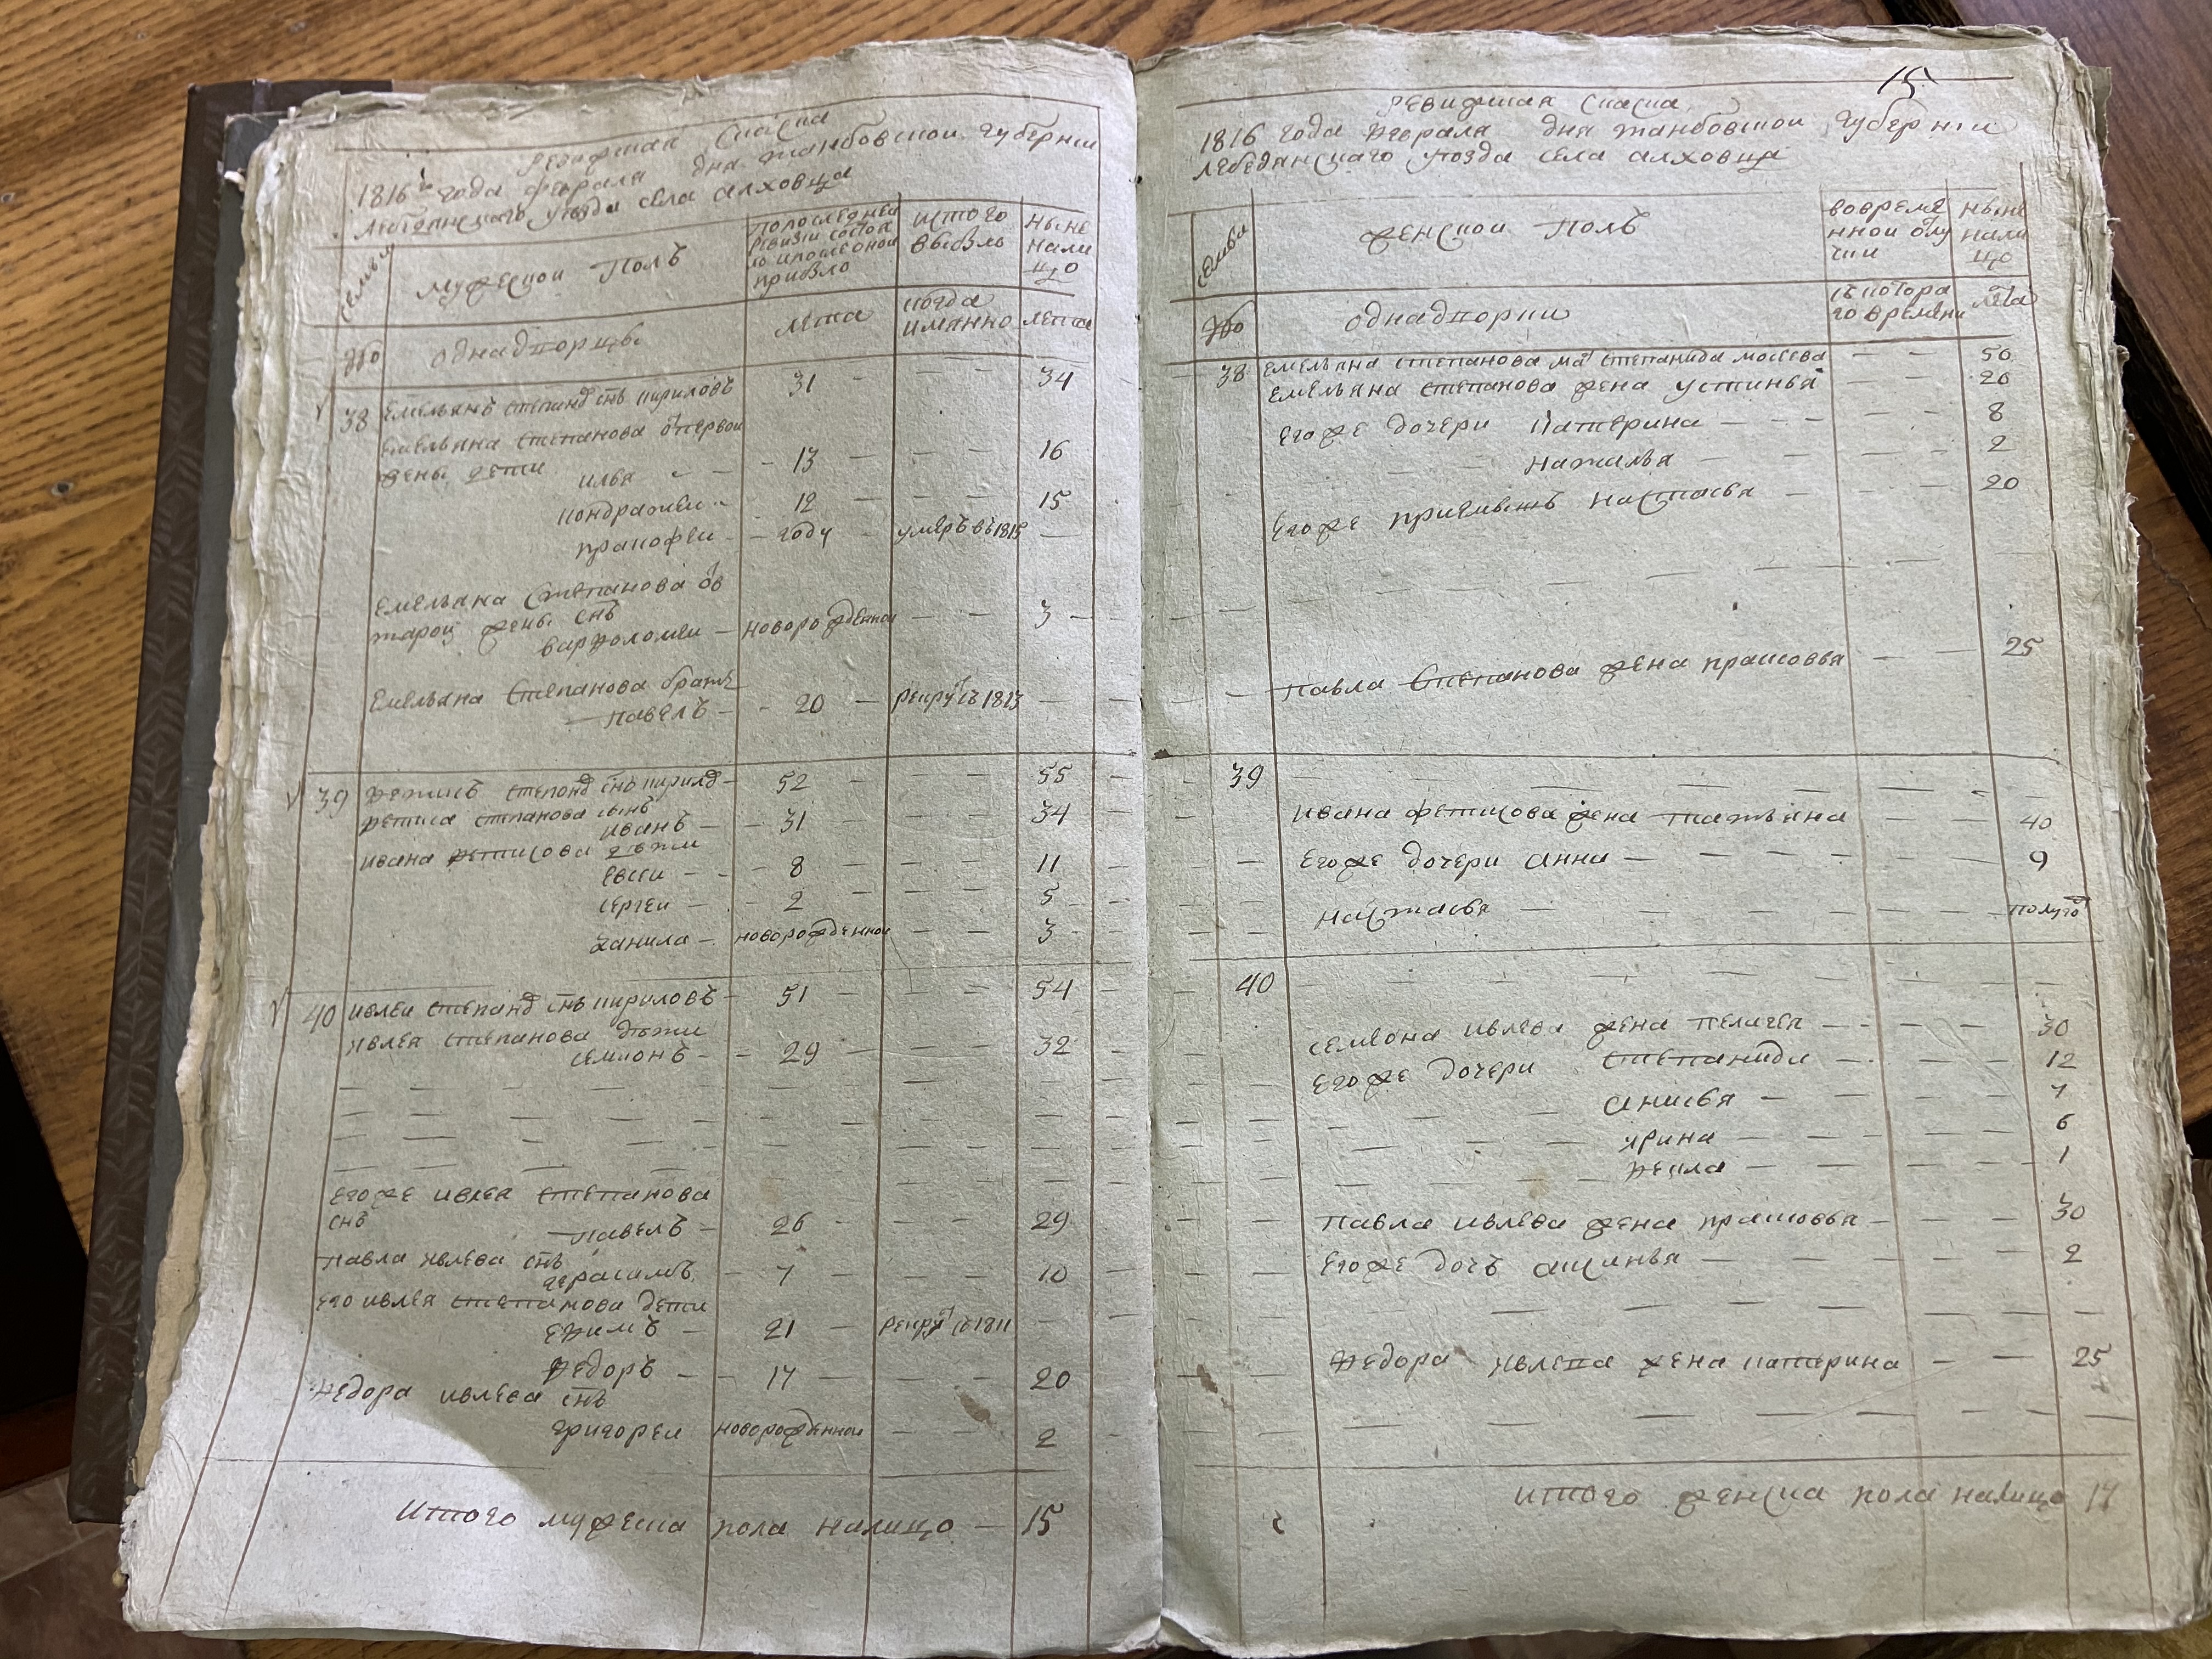 Ревижская Скаска
1816 года февраля дня танбовской губернии
Лебедянскаго уезда села алховца
семьи
мужеской Полъ
Попоследней ревизи состояло ипоследоной прибыло
итого выбыло
ныне налицо
№
однадворцы
лета
когда имянно
лета
38 Емельянъ степановъ снъ кириловъ 31 34
Емельяна степанова отпервой
жены дети илья 13 16
кондратеи 12 15
пракофеи году умеръ въ 1815
Емельяна Степанова отв
тарой жены снъ
варфоломеи новорожденной 3
Емельяна Степанова братъ
павелъ 20 рекрутъ съ 1813
39 фетисъ степоновъ снъ кирилов 52 55
фетиса степанова сынъ
иванъ 31 34
ивана фетисова дѣти
евсеи 8 11
сергеи 2 5
данила новорожденной 3
40 ивлеи степановъ снъ кириловъ 51 54
ивлея степанова дѣти
семионъ 29 32
егоже ивлея степанова
снъ павелъ 26 29
павла ивлева снъ
герасимъ 7 10
его ивлея степанова дети
ефимъ 21 рекрутъ съ 1811
федоръ 17 20
федора ивлева снъ
григореи новорожденнои 2
Итого мужеска пола налицо 15
15
ревижская скаска
1816 года февраля дня танбовской губернии
лебедянскаго уезда села алховца
семьи
женской полъ
вовременной отлучки
ныне налицо
№
однадворки
съкотораго времени
лета
38 емельяна степанова мат степанида мосеева 50
емельяна степанова жена устинья 26
егоже дочери катерина 8
наталья 2
егоже приемышъ настасья 20
павла степанова жена прасковья 25
39
ивана фетисова жена татьяна 40
егоже дочери анна 9
настасья полуго
40
семиона ивлева жена пелагея 30
егоже дочери степанида 12
анисья 7
ярина 6
фекла 1
павла ивлева жена прасковья 30
егоже дочъ аксинья 2
федора ивлева жена катерина 25
итого женска пола налицо 17